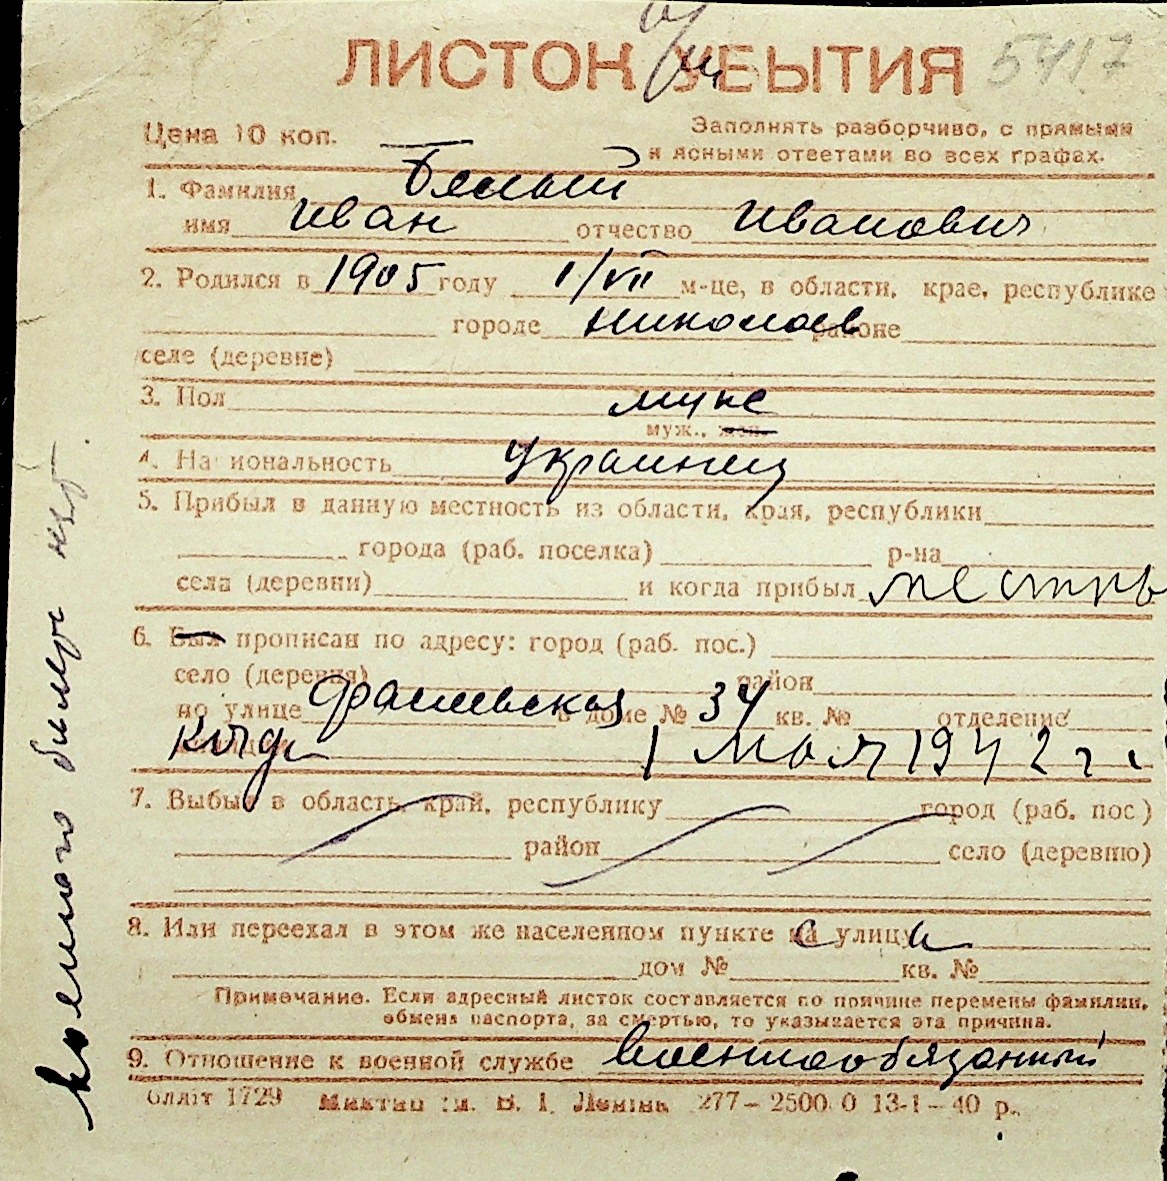 ЛИСТОК УБЫТИЯ 5417
Цена 10 коп.
Заполнять разборчиво, с прямыми
и ясными ответами во всех графах.
1. Фамилия Белый
имя Иван отчество Иванович
2. Родился в 1905 году 1/VII м-це, в области, крае, республике
городе Николаев районе
селе (деревне)
3. Пол муж
муж., жен.
4. Национальность Украинец
5. Прибыл в данную местность из области, края, республики
города (раб. поселка) р-на
села (деревни) и когда прибыл местны
6. Был прописан по адресу: город (раб. пос.)
село (деревня) район
по улице в доме № 34 кв. № отделение
Когда 1 мая 1942 г.
7. Выбыл в область, край, республику город (раб. пос.)
район село (деревню)
8. Или переехал в этом же населенном пункте на улицу
дом № кв. №
Примечание. Если адресный листок составляется по причине перемены фамилии,
обмена паспорта, за смертью, то указывается эта причина.
9. Отношение к военной службе Военнообязанный
облліт 1729 ім. В. І. Леніна 277–2500.0 13-1–40 р.
военного билета нет.